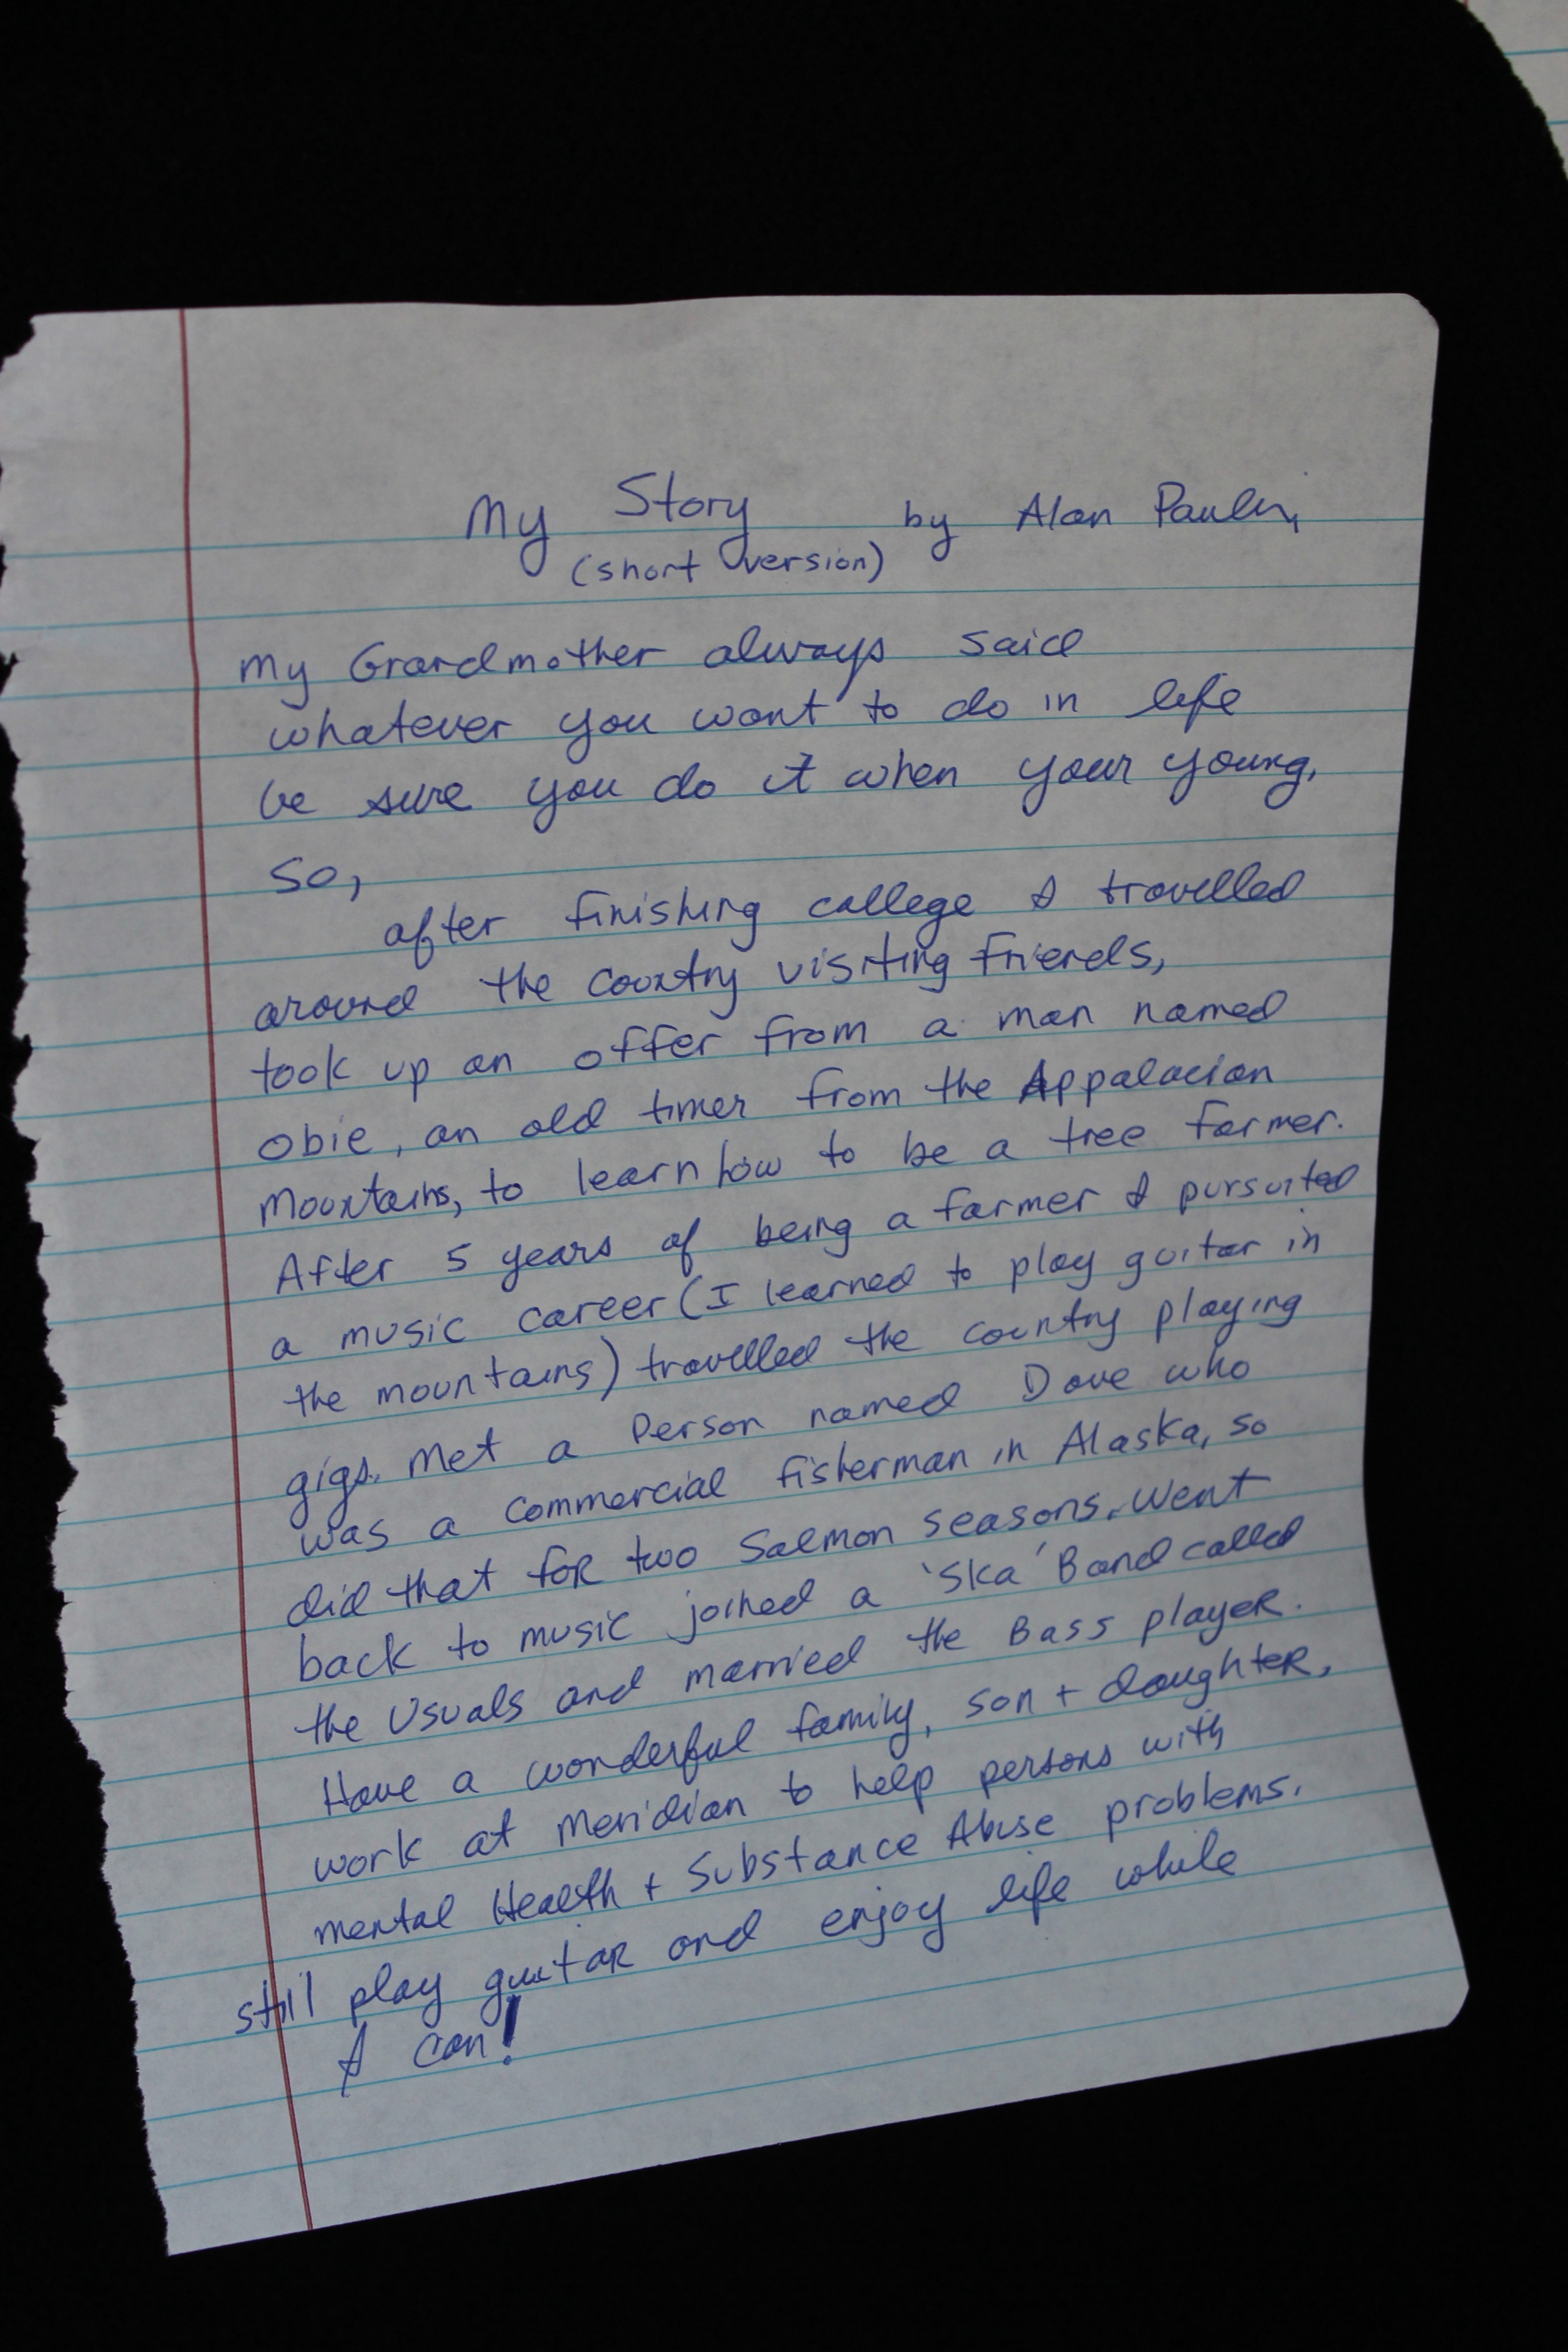 My Story by Alan
(short version)
My Grandmother always said
whatever you want to do in life
be sure you do it when your young.
So,
after finishing college I travelled
around the country visiting friends,
took up an offer from a man named
Obie, an old timer from the Appalacian
Mountains, to learn how to be a tree farmer.
After 5 years of being a farmer I pursuited
a music career (I learned to play guitar in
the mountains) travelled the country playing
gigs. Met a Person named Dave who
was a commercial fisherman in Alaska, so
did that for two Salmon seasons. Went
back to music joined a 'Ska' Band called
the Usuals and married the Bass player.
Have a wonderful family, son + daughter,
work at Meridian to help persons with
mental Health + Substance Abuse problems.
still play guitar and enjoy life while
I can!